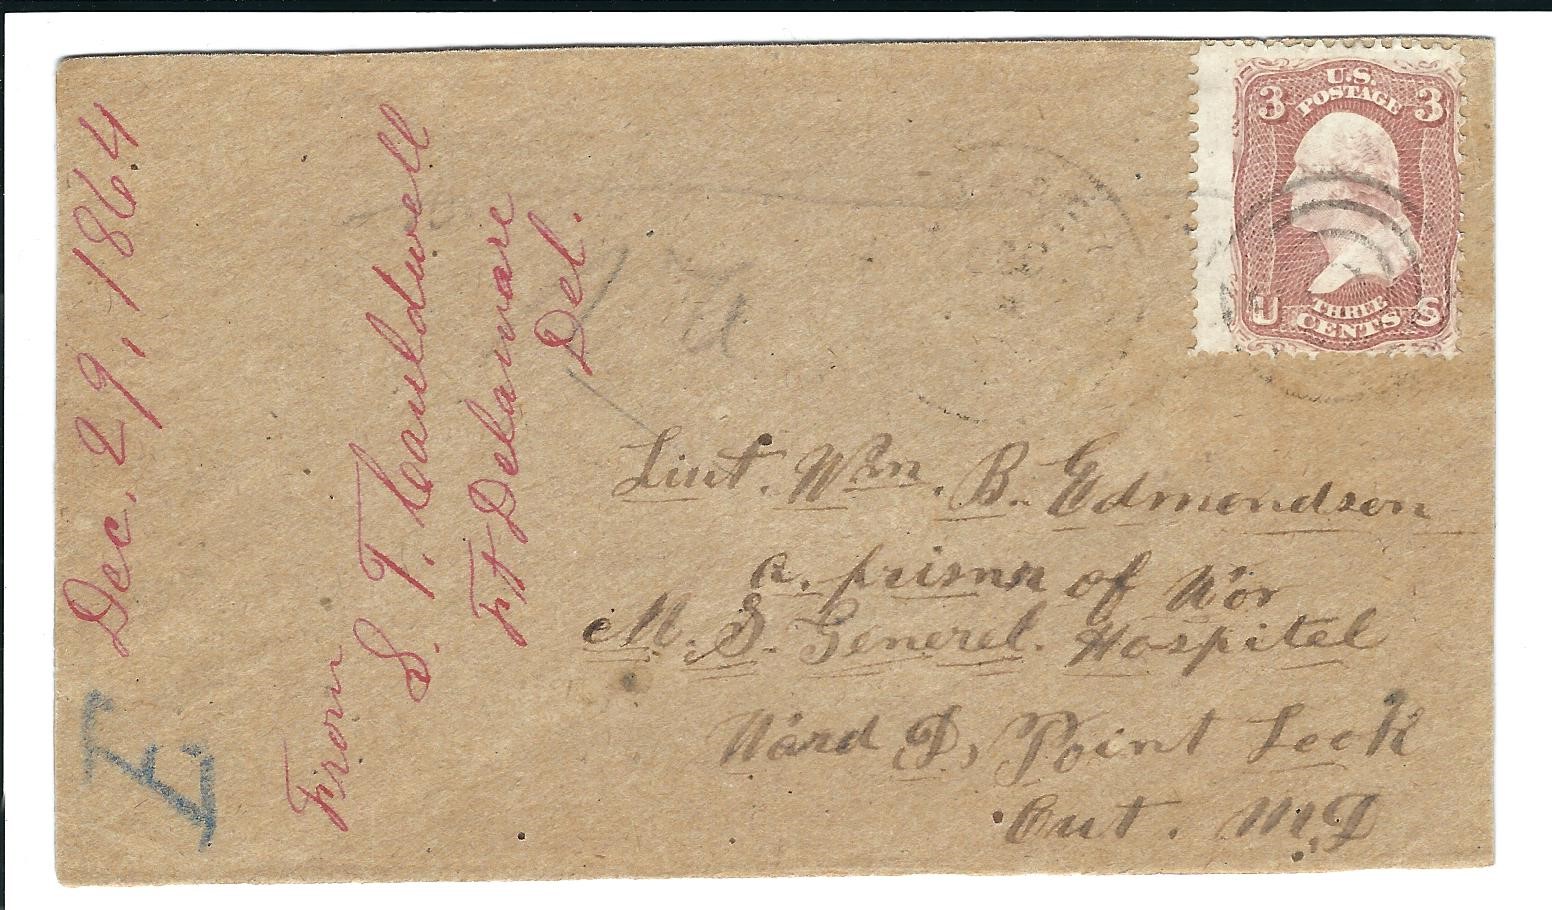 Dec. 29, 1864
From
S. T. Cauldwell
Ft Delaware
Del.
E.
3 U.S. POSTAGE 3
U THREE CENTS S
Liut. Wm. B. Edmondson
a. prisnr of War
M. S. Generel. Hospitel
Ward D, Point Look
Out. MD